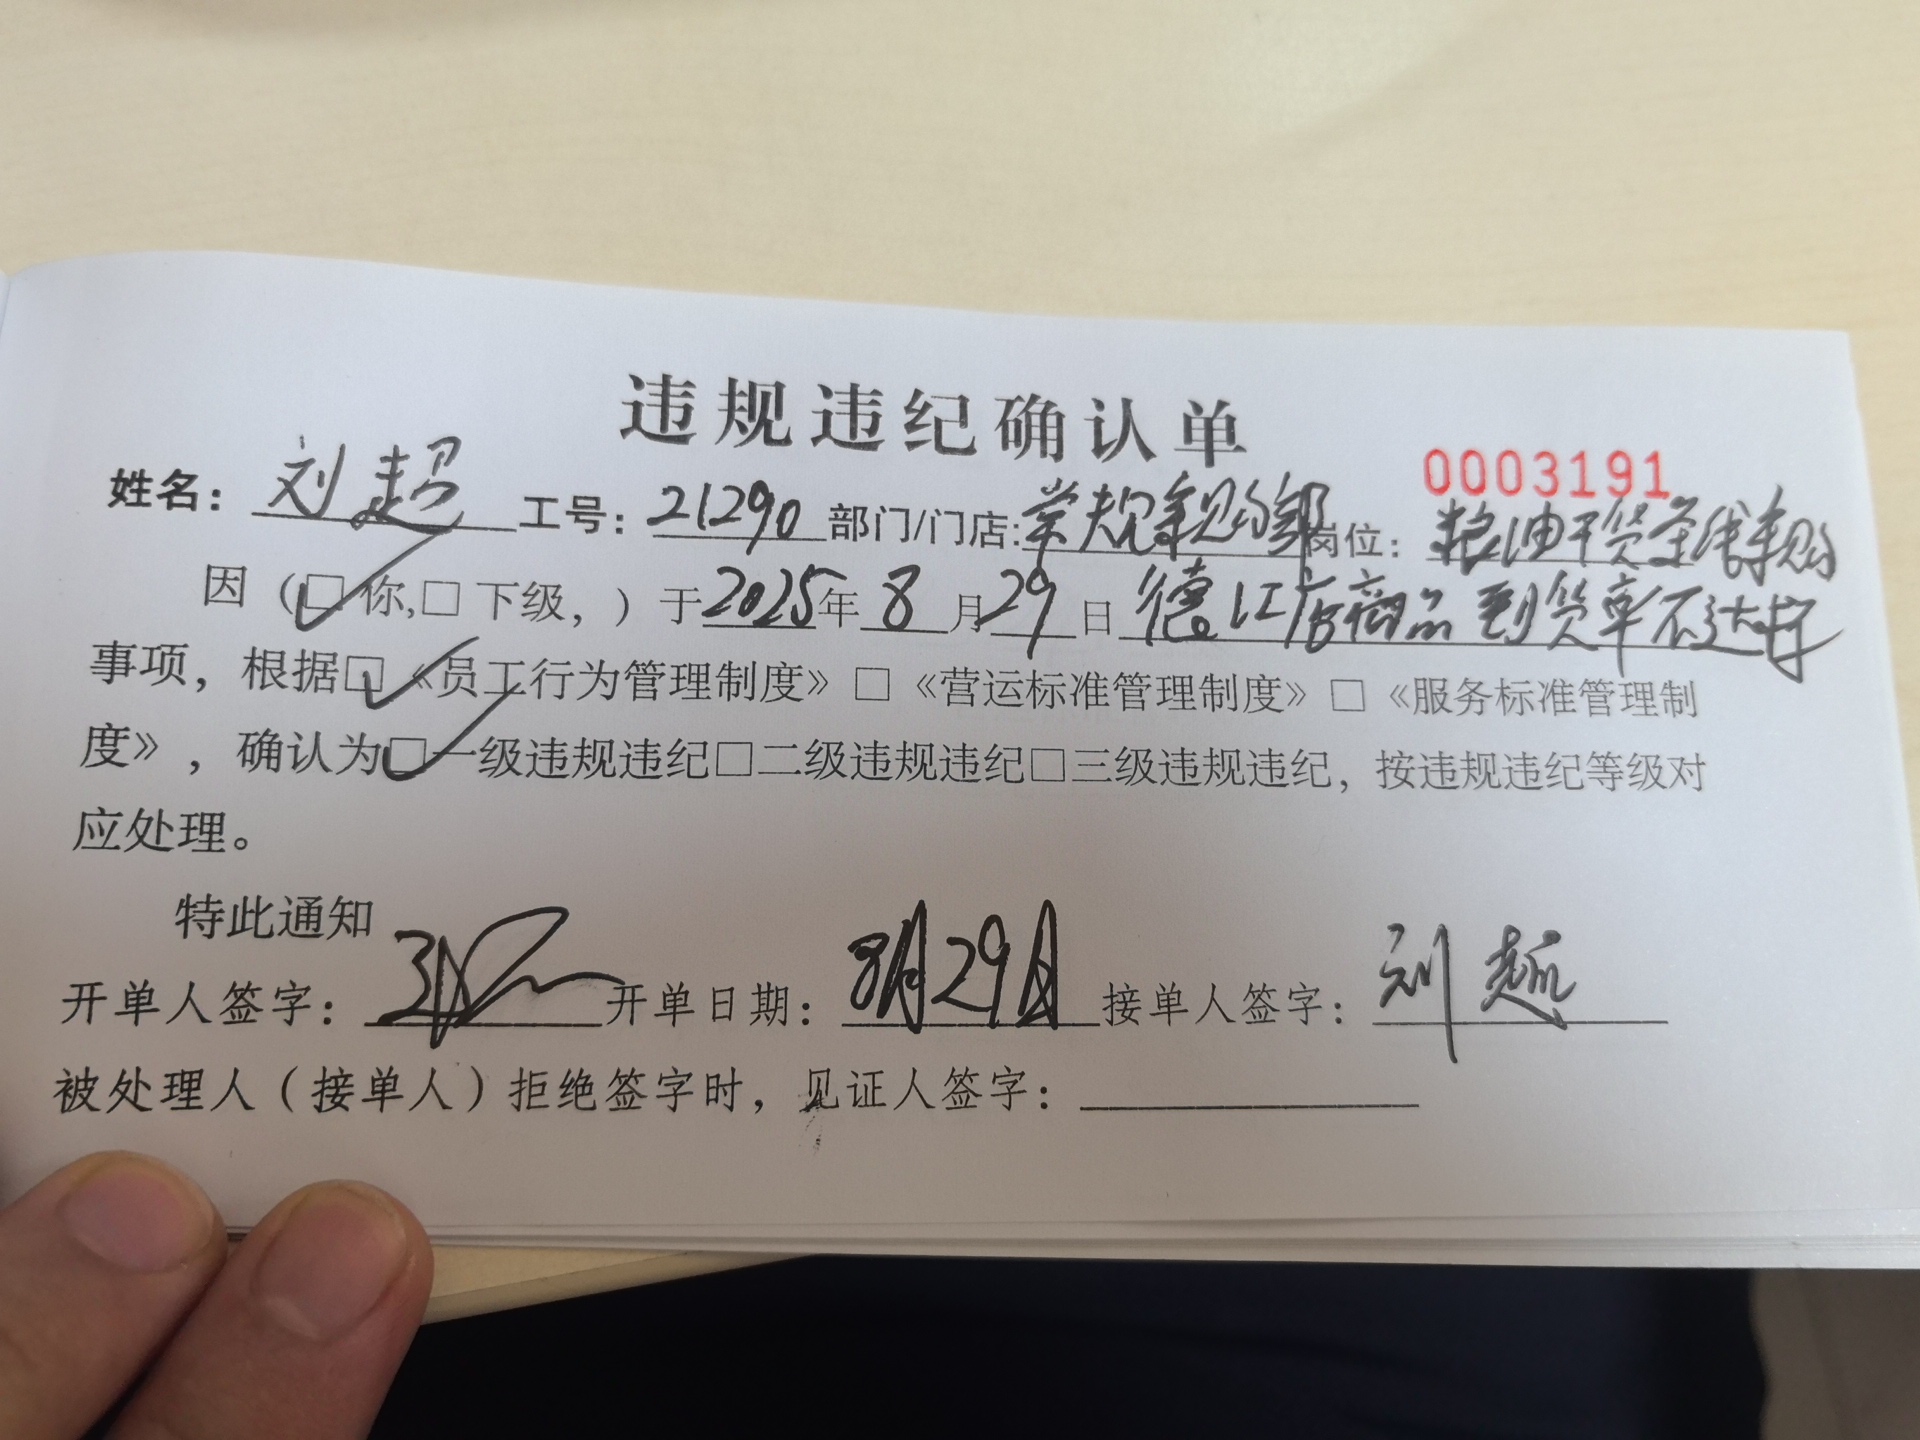 违规违纪确认单
0003191
姓名：刘超 工号：21290 部门/门店:常规采购部 岗位：粮油干货条线采购
因（☑你,□下级，）于2025年8月29日德江店商品到货率不达标
事项，根据☑《员工行为管理制度》□《营运标准管理制度》□《服务标准管理制
度》，确认为☑一级违规违纪□二级违规违纪□三级违规违纪，按违规违纪等级对
应处理。
特此通知
开单人签字： 开单日期：8月29日 接单人签字：刘超
被处理人（接单人）拒绝签字时，见证人签字：